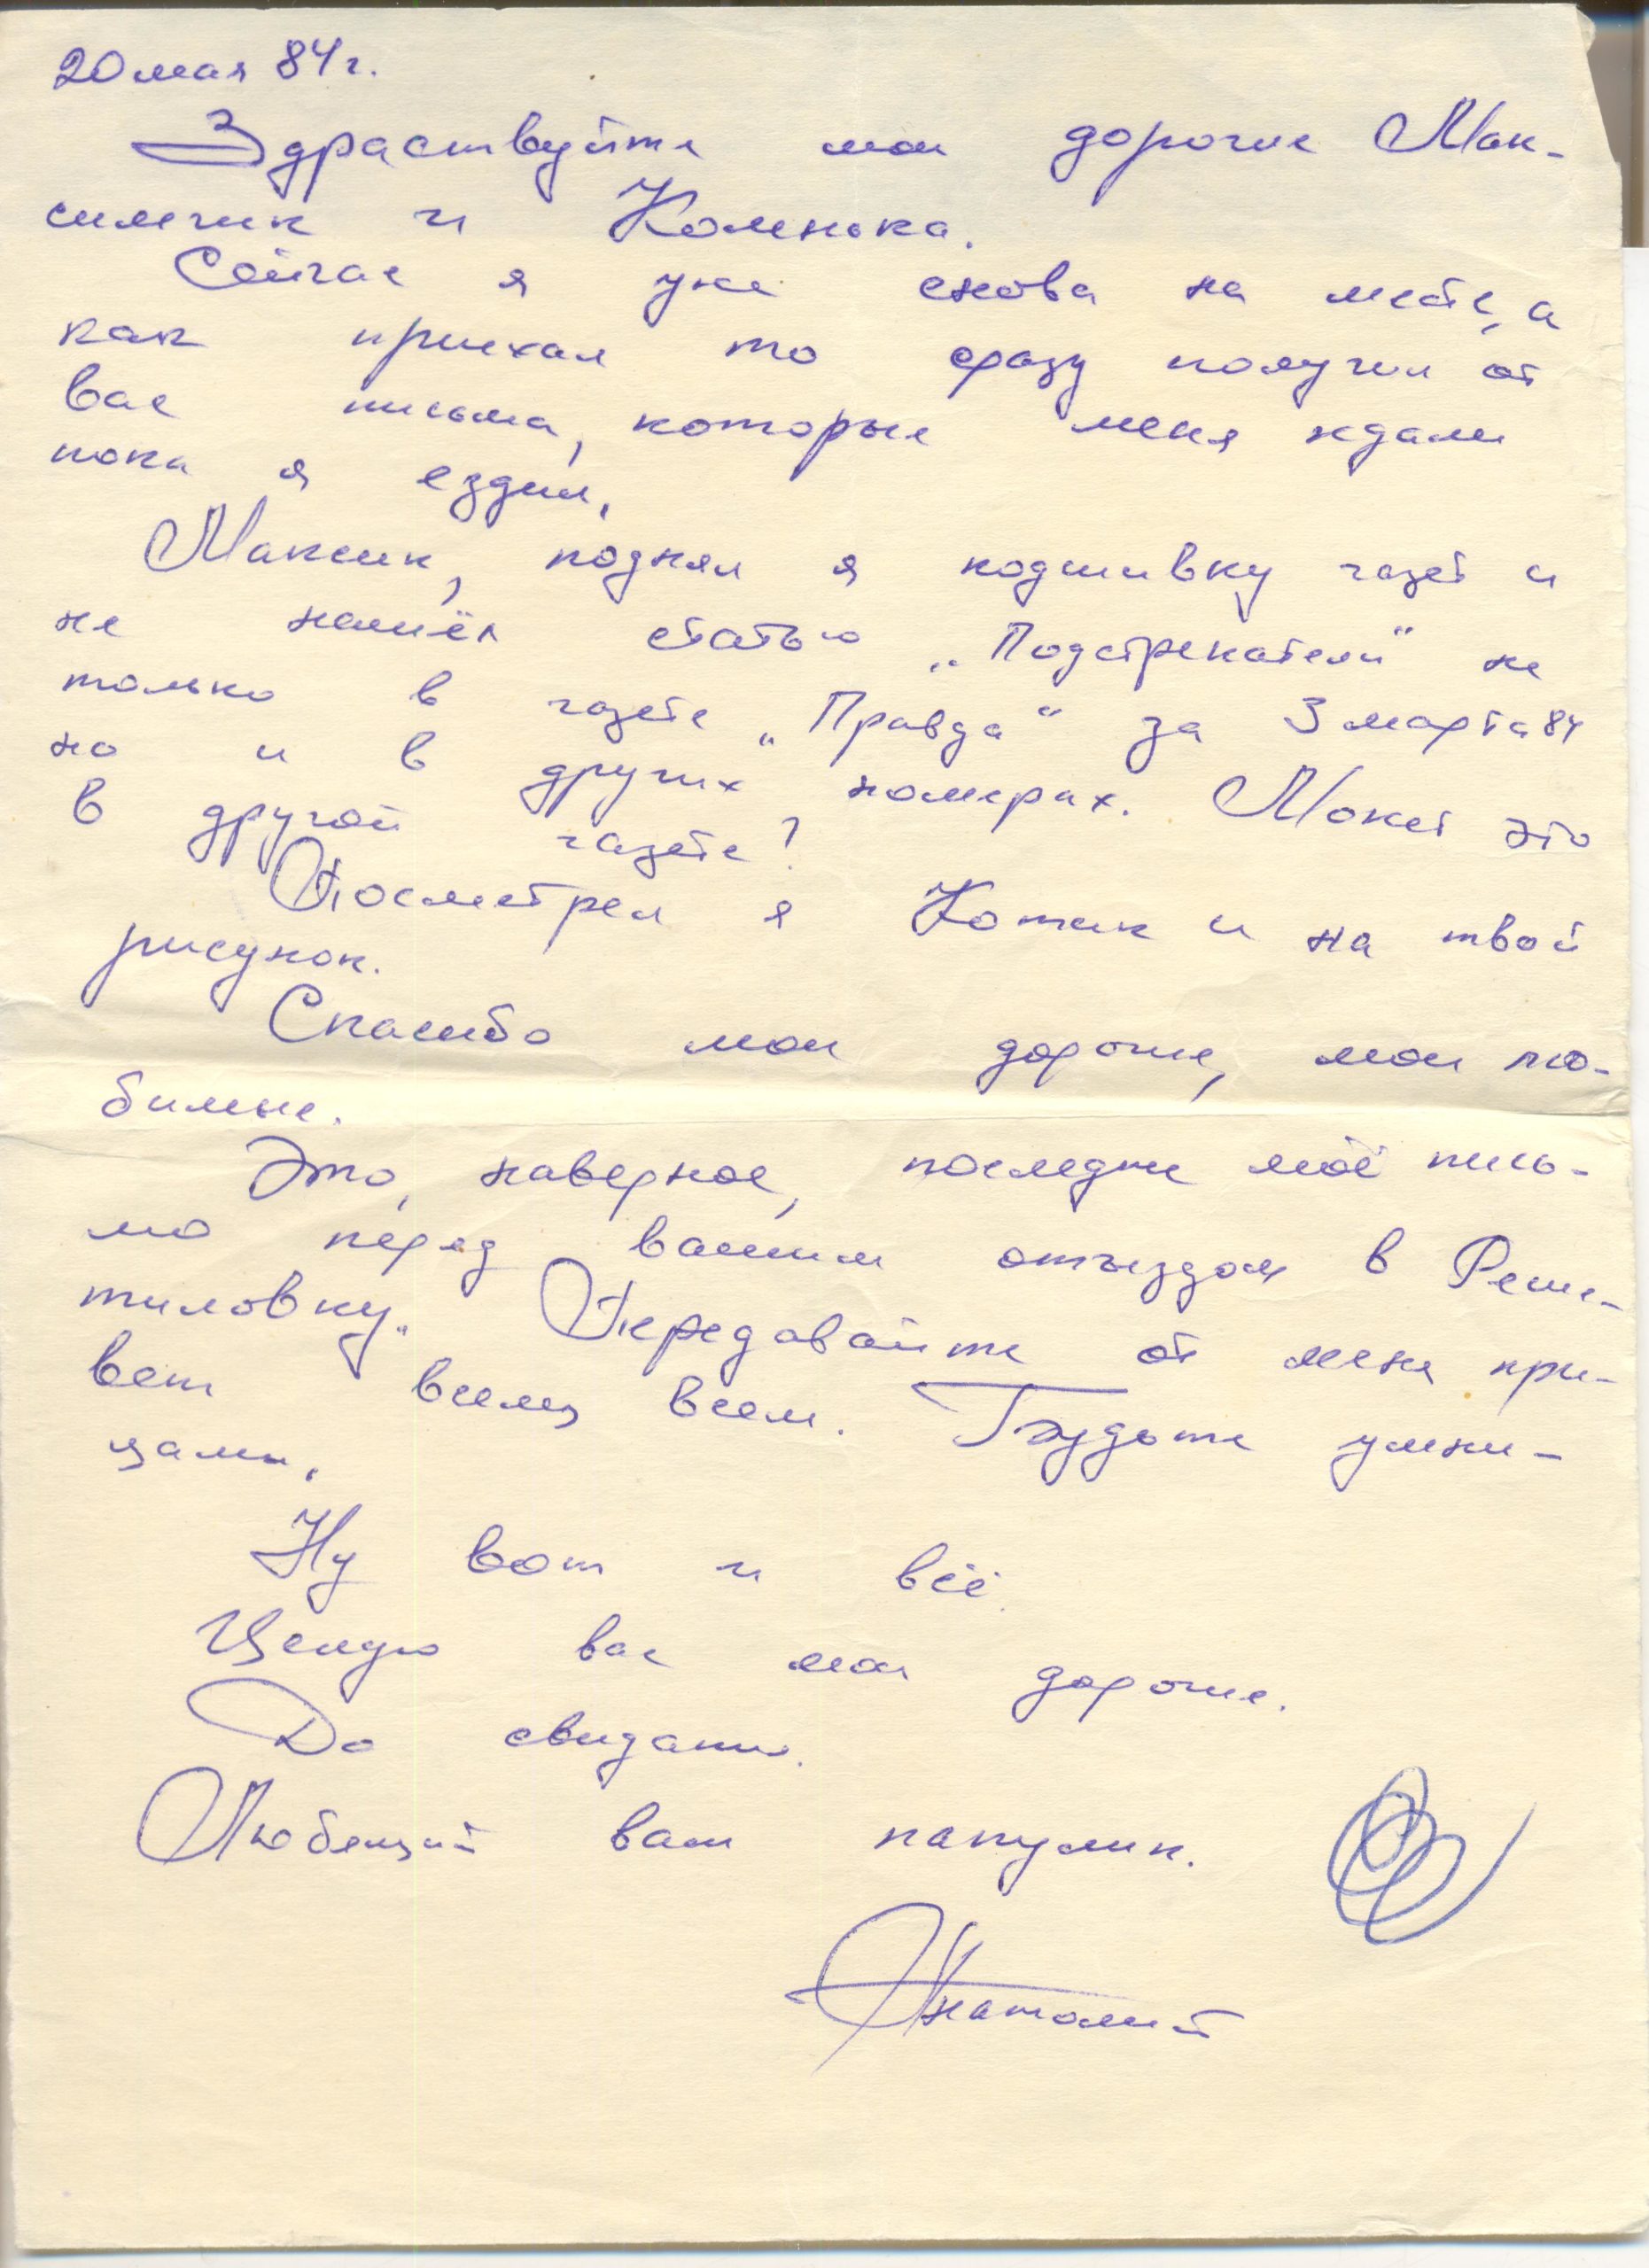 20 мая 84 г.
Здраствуйте мои дорогие Мак-
симчик и Коленька.
Сейчас я уже снова на месте, а
как приехал то сразу получил от
вас письма, которые меня ждали
пока я ездил.
Максик, поднял я подшивку газет и
не нашёл статью „Подстрекатели" не
только в газете „Правда" за 3 марта 84
но и в других номерах. Может это
в другой газете?
Посмотрел я Котик и на твой
рисунок.
Спасибо мои дорогие, мои лю-
бимые.
Это, наверное, последнее моё пись-
мо перед вашим отъездом в Реше-
тиловку. Передавайте от меня при-
вет всем, всем. Будьте умни-
цами.
Ну вот и всё.
Целую вас мои дорогие.
До свидания.
Любящий ваш папулик.
Анатолий